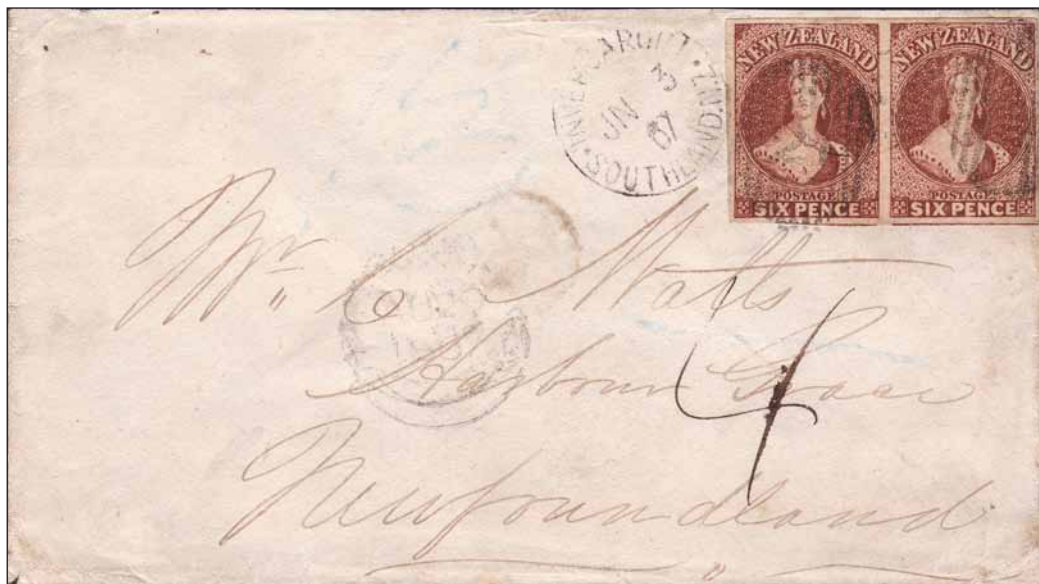 INVERCARGILL · SOUTHLAND · N.Z.
3
JN
67
NEW ZEALAND
POSTAGE
SIX PENCE
NEW ZEALAND
POSTAGE
SIX PENCE
Mr C Watts
Harbour Grace
4
Newfoundland